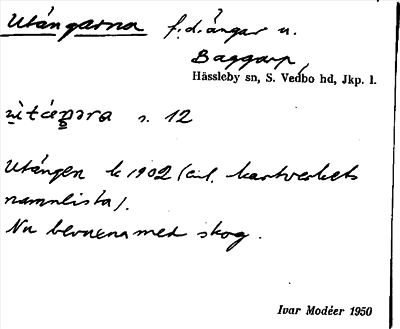 Utängarna f.d. ängar u.
Baggarp,
Hässleby sn, S. Vedbo hd, Jkp. l.
s. 12
Utängen k 1902 (enl. kartverkets
namnlista).
Nu bevuxna med skog.
Ivar Modéer 1950